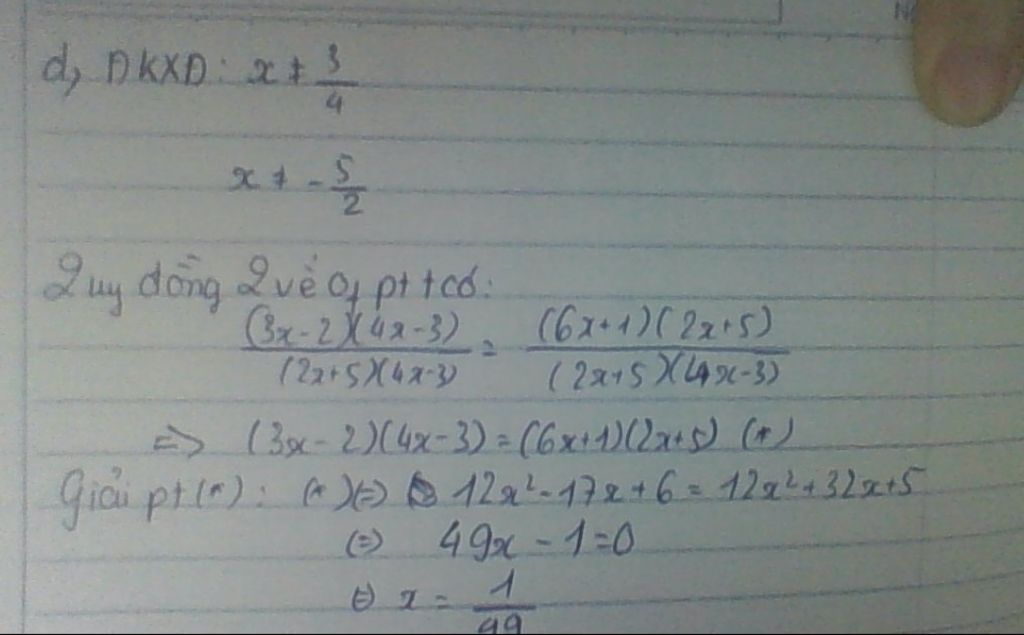 d, ĐKXĐ: x ≠ 3/4
x ≠ -5/2
Quy đồng 2 vế of pt tcó:
(3x-2)(4x-3)/(2x+5)(4x-3) = (6x+1)(2x+5)/(2x+5)(4x-3)
=> (3x-2)(4x-3) = (6x+1)(2x+5) (*)
Giải pt(*): (*) (=) 12x²-17x+6 = 12x²+32x+5
(=) 49x - 1 = 0
(=) x = 1/49